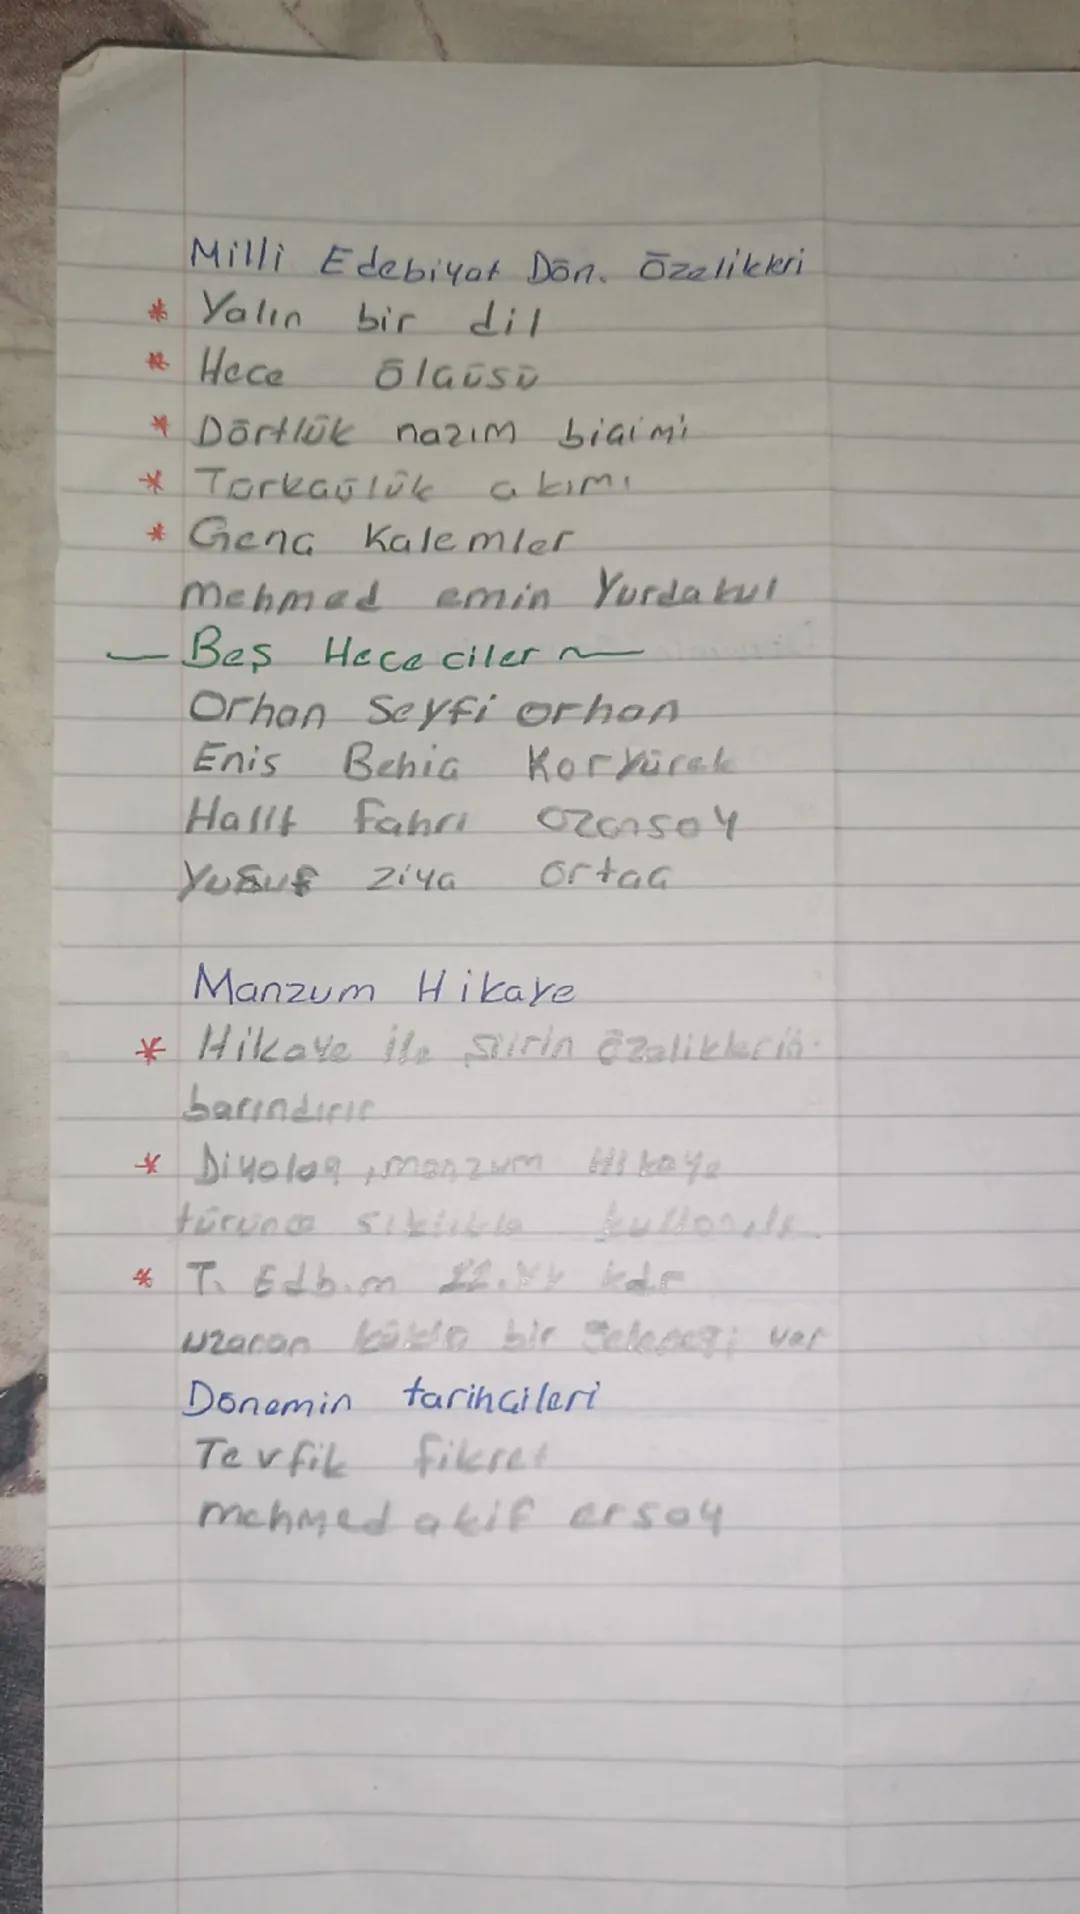 Milli Edebiyat Dön. Özelikleri
* Yalın bir dil
* Hece ölçüsü
* Dörtlük nazım biçimi
* Türkçülük akımı
* Genç Kalemler
Mehmed emin Yurdakul
— Beş Hececiler ~
Orhan Seyfi orhon
Enis Behiç Koryürek
Halit Fahri Ozansoy
Yusuf ziya ortaç
Manzum Hikaye
* Hikaye ile şiirin özeliklerin
barındırır
* Diyolog, manzum Hikaye
türünce sıklıkla kullanılır.
* T. Edb.m kdr
uzanan köklü bir geleneği var
Dönemin tarihçileri
Tevfik fikret
mehmed akif ersoy